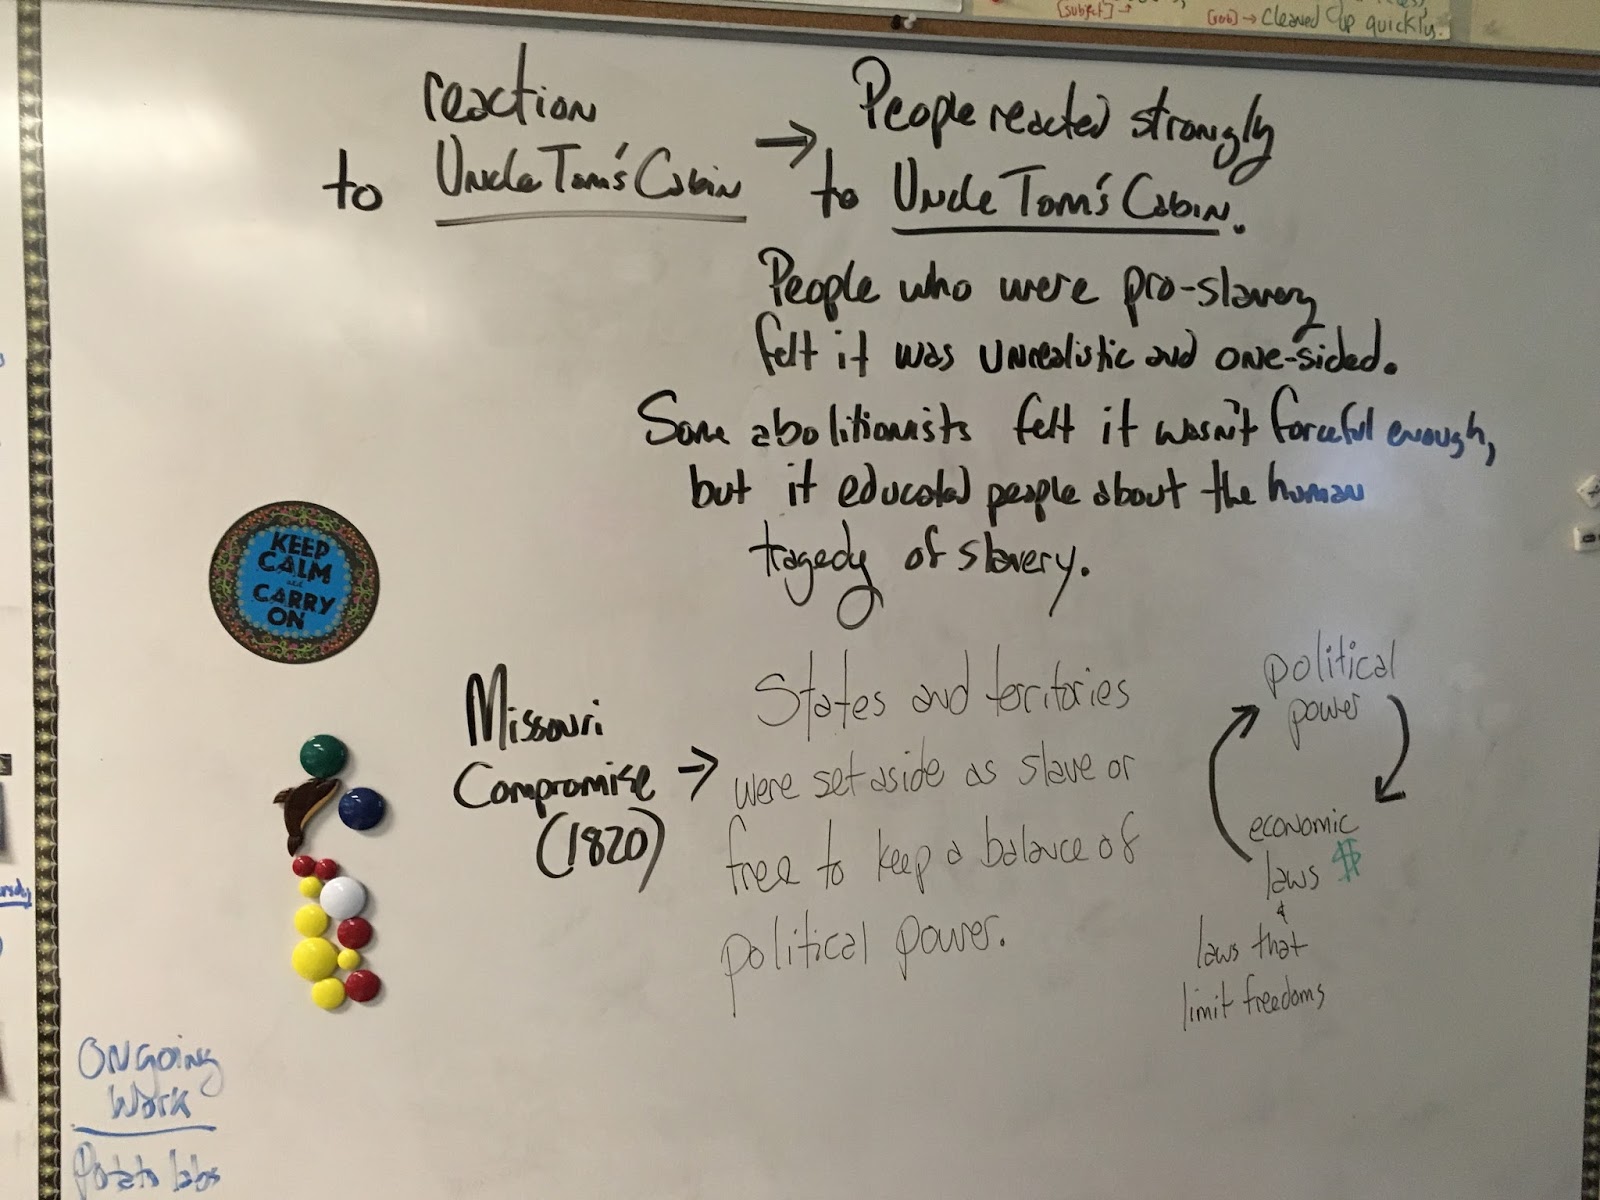 [subject] →
[verb] → Cleaned Up quickly.
reaction
to Uncle Tom's Cabin
→
People reacted strongly
to Uncle Tom's Cabin.
People who were pro-slavery
felt it was unrealistic and one-sided.
Some abolitionists felt it wasn't forceful enough,
but it educated people about the human
tragedy of slavery.
KEEP
CALM
AND
CARRY
ON
Missouri
Compromise →
(1820)
States and territories
were set aside as slave or
free to keep a balance of
political power.
political
power
economic
laws $
&
laws that
limit freedoms
Ongoing
Work
Potato labs